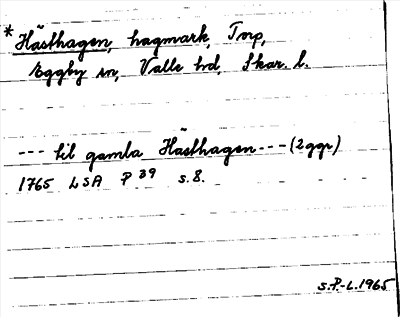 * Hästhagen, hagmark, Torp,
Eggby sn, Valle hd, Skar. l.
--- til gamla Hästhagen --- (2ggr)
1765 LSA P 39 s.8.
S.P.-L.1965